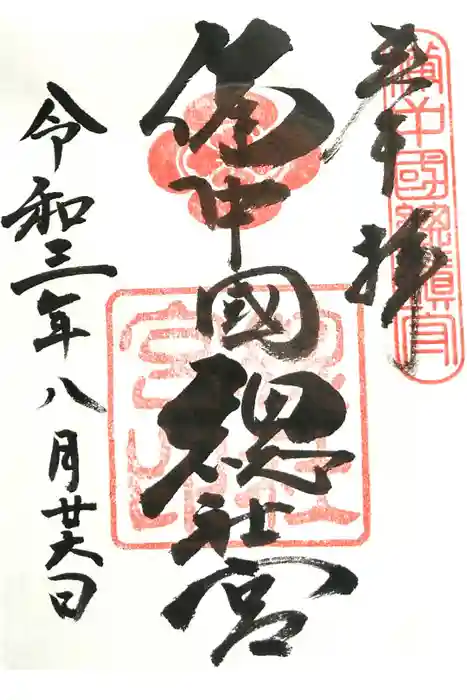 奉拝
備中國総鎮守
備中國総社宮
令和三年八月廿六日